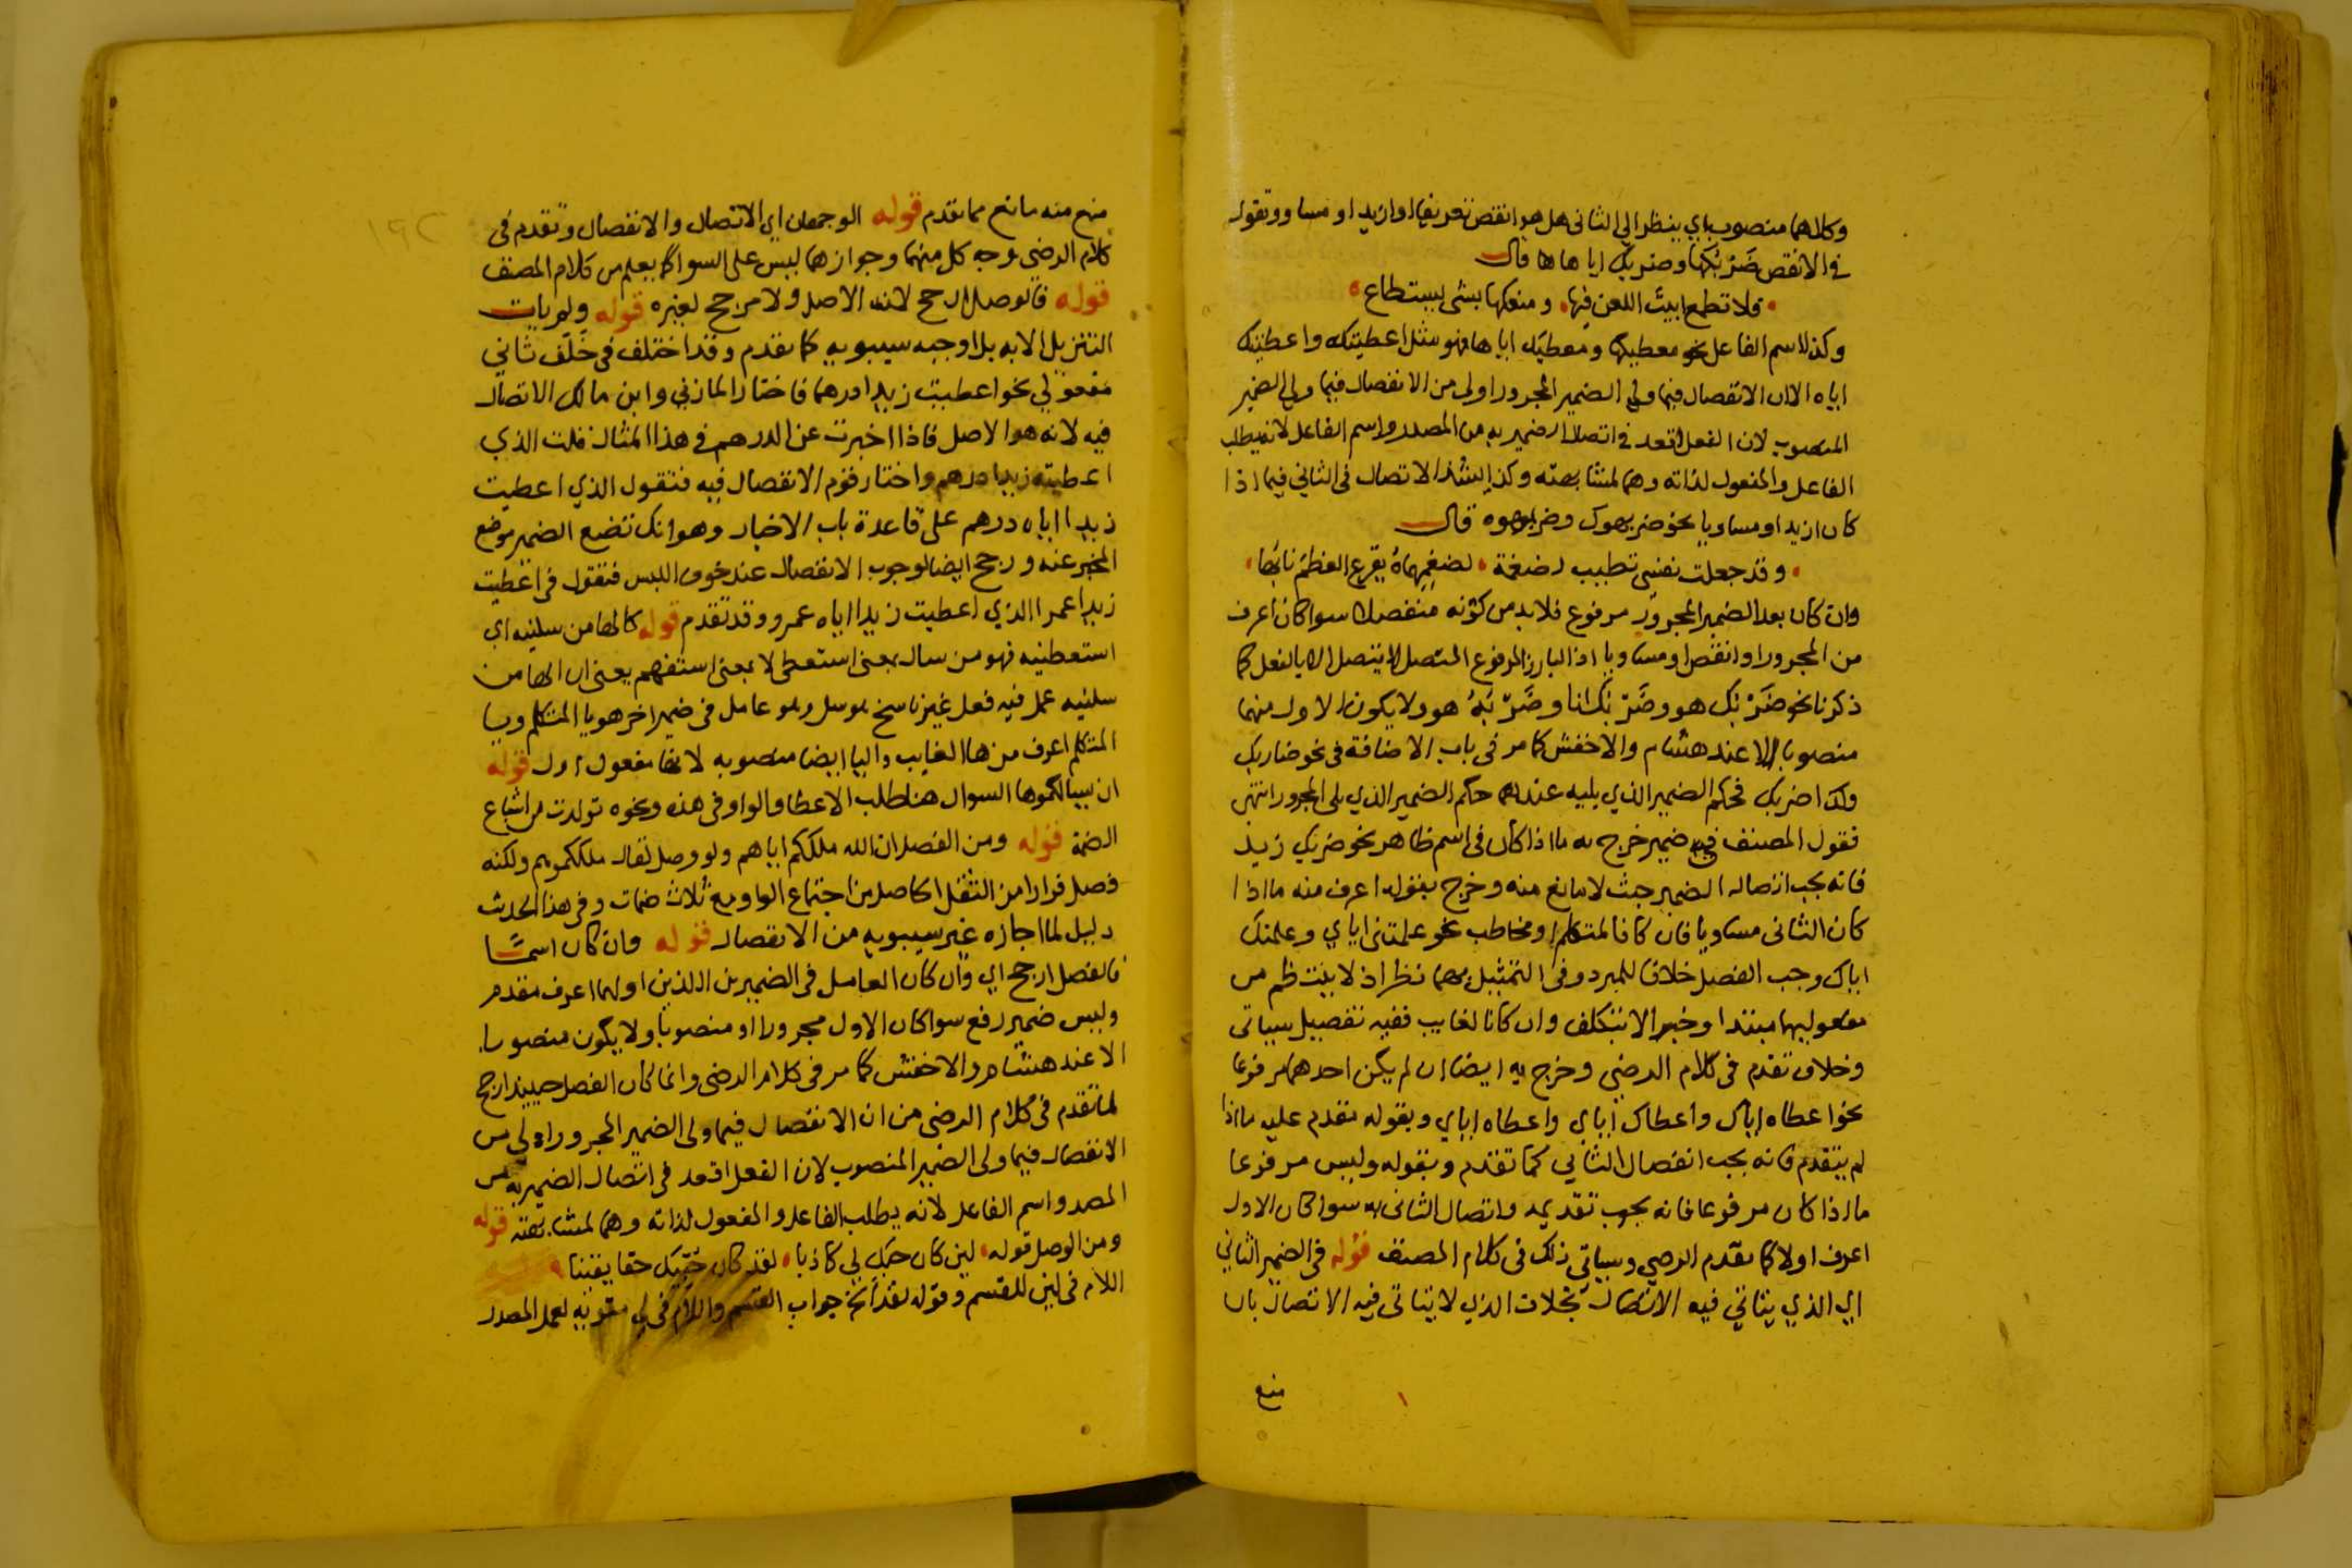 وكلاهما منصوب باي ينظر الى الثاني هل هو انقص تعريفا او ازيد او مساو وتقول
في الانقص ضَرْبَكها وضربك اياها ها قال
فلا تطمع ابيتَ اللعن فيها ومنعكها بشي يستطاع
وكذا اسم الفاعل نحو معطيكها ومعطيك اياها فهو مثل اعطيتكه واعطيتك
اياه الا ان الانفصال فيما ولي الضمير المجرور اولى من الانفصال فيما ولي الضمير
المنصوب لان الفعل اقعد في اتصال الضمير به من المصدر واسم الفاعل لانه يطلب
الفاعل والمفعول لذاته وهما لمشابهته وكذا يشذ الاتصال في الثاني فيما اذا
كان ازيد او مساويا نحو ضربهوك وضربهوه قال
وقد جعلت نفسي تطيب لضغمة لضغمهماهُ يقرع العظمَ نابُها
وان كان بعد الضمير المجرور مرفوع فلا بد من كونه منفصلا سوا كان اعرف
من المجرور او انقص او مساويا اذ البارز المرفوع المتصل لا يتصل الا بالفعل كما
ذكرنا نحو ضَرْبُك هو وضَرْبُك انا وضَرْبُهُ هو ولا يكون الاول منهما
منصوبا الا عند هشام والاخفش كما مر في باب الاضافة في نحو ضاربك
فحكم الضمير الذي يليه عندهما حكم الضمير الذي يلي المجرور انتهى
فقول المصنف في ضمير خرج به ما اذا كان في اسم ظاهر نحو ضربك زيد
فانه يجب اتصال الضمير حيث لا مانع منه وخرج بقوله اعرف منه ما اذا
كان الثاني مساويا فان كانا لمتكلم او مخاطب نحو علمتني اياي وعلمتك
اياك وجب الفصل خلافا للمبرد وفي التمثيل بهما نظر اذ لا ينتظم من
مفعوليهما مبتدا وخبر الا بتكلف وان كانا لغايب ففيه تفصيل سياتي
وخلاف تقدم في كلام الرضي وخرج به ايضا ان لم يكن احدهما مرفوعا
نحو اعطاه اياك واعطاك اياي واعطاه اياي وبقوله تقدم عليه ما اذا
لم يتقدم فانه يجب انفصال الثاني كما تقدم وبقوله وليس مرفوعا
ما اذا كان مرفوعا فانه يجب تقديمه واتصال الثاني به سوا كان الاول
اعرف اولا كما تقدم الرضي وسياتي ذلك في كلام المصنف قوله في الضمير الثاني
اي الذي يتاتى فيه الاتصال بخلاف الذي لا يتاتى فيه الاتصال بان
منع
١٩٢
منع منه مانع مما تقدم قوله الوجهان اي الاتصال والانفصال وتقدم في
كلام الرضي توجيه كل منهما وجوازهما ليس على السوا كما يعلم من كلام المصنف
قوله فالوصل ارجح لانه الاصل ولا مرجح لغيره قوله ولم يات
التنزيل الا به بل اوجبه سيبويه كما تقدم وقد اختلف في خَلَف ثاني
مفعولي نحو اعطيت زيدا درهما فاختار المازني وابن مالك الاتصال
فيه لانه هو الاصل فاذا اخبرت عن الدرهم في هذا المثال قلت الذي
اعطيته زيدا درهم واختار قوم الانفصال فيه فتقول الذي اعطيت
زيدا اياه درهم على قاعدة باب الاخبار وهو انك تضع الضمير موضع
المخبر عنه ورجح ايضا لوجوب الانفصال عند خوف اللبس فتقول في اعطيت
زيدا عمرا الذي اعطيت زيدا اياه عمرو وقد تقدم قوله كالها من سلنيه اي
استعطنيه فهو من سال بمعنى استعطى لا بمعنى استفهم يعني ان الها من
سلنيه عمل فيه فعل غير ناسخ وهو سل وهو عامل في ضمير اخر هو يا المتكلم ويا
المتكلم اعرف من ها الغايب واليا ايضا منصوبه لانها مفعول اول قوله
ان يسالكموها السوال هنا طلب الاعطا والواو في هذه ونحوه تولدت من اشباع
الضمة قوله ومن الفصل ان الله ملككم اياهم ولو وصل لقال ملككموهم ولكنه
فصل فرارا من الثقل الحاصل من اجتماع الواو مع ثلاث ضمات وفي هذا الحديث
دليل لما اجازه غير سيبويه من الانفصال قوله وان كان اسمًا
فالفصل ارجح اي وان كان العامل في الضميرين اللذين اولهما اعرف مقدم
وليس ضمير رفع سوا كان الاول مجرورا او منصوبا ولا يكون منصوبا
الا عند هشام والاخفش كما مر في كلام الرضي وانما كان الفصل حينيذ ارجح
لما تقدم في كلام الرضي من ان الانفصال فيما ولي الضمير المجرور اولى من
الانفصال فيما ولي الضمير المنصوب لان الفعل اقعد في اتصال الضمير به من
المصدر واسم الفاعل لانه يطلب الفاعل والمفعول لذاته وهما لمشابهته قوله
ومن الوصل قوله لين كان حبك لي كاذبا لقد كان حُبّيك حقا يقينا
اللام في لين للقسم وقوله لقد الخ جواب القسم واللام في لي مقويه لعمل المصدر